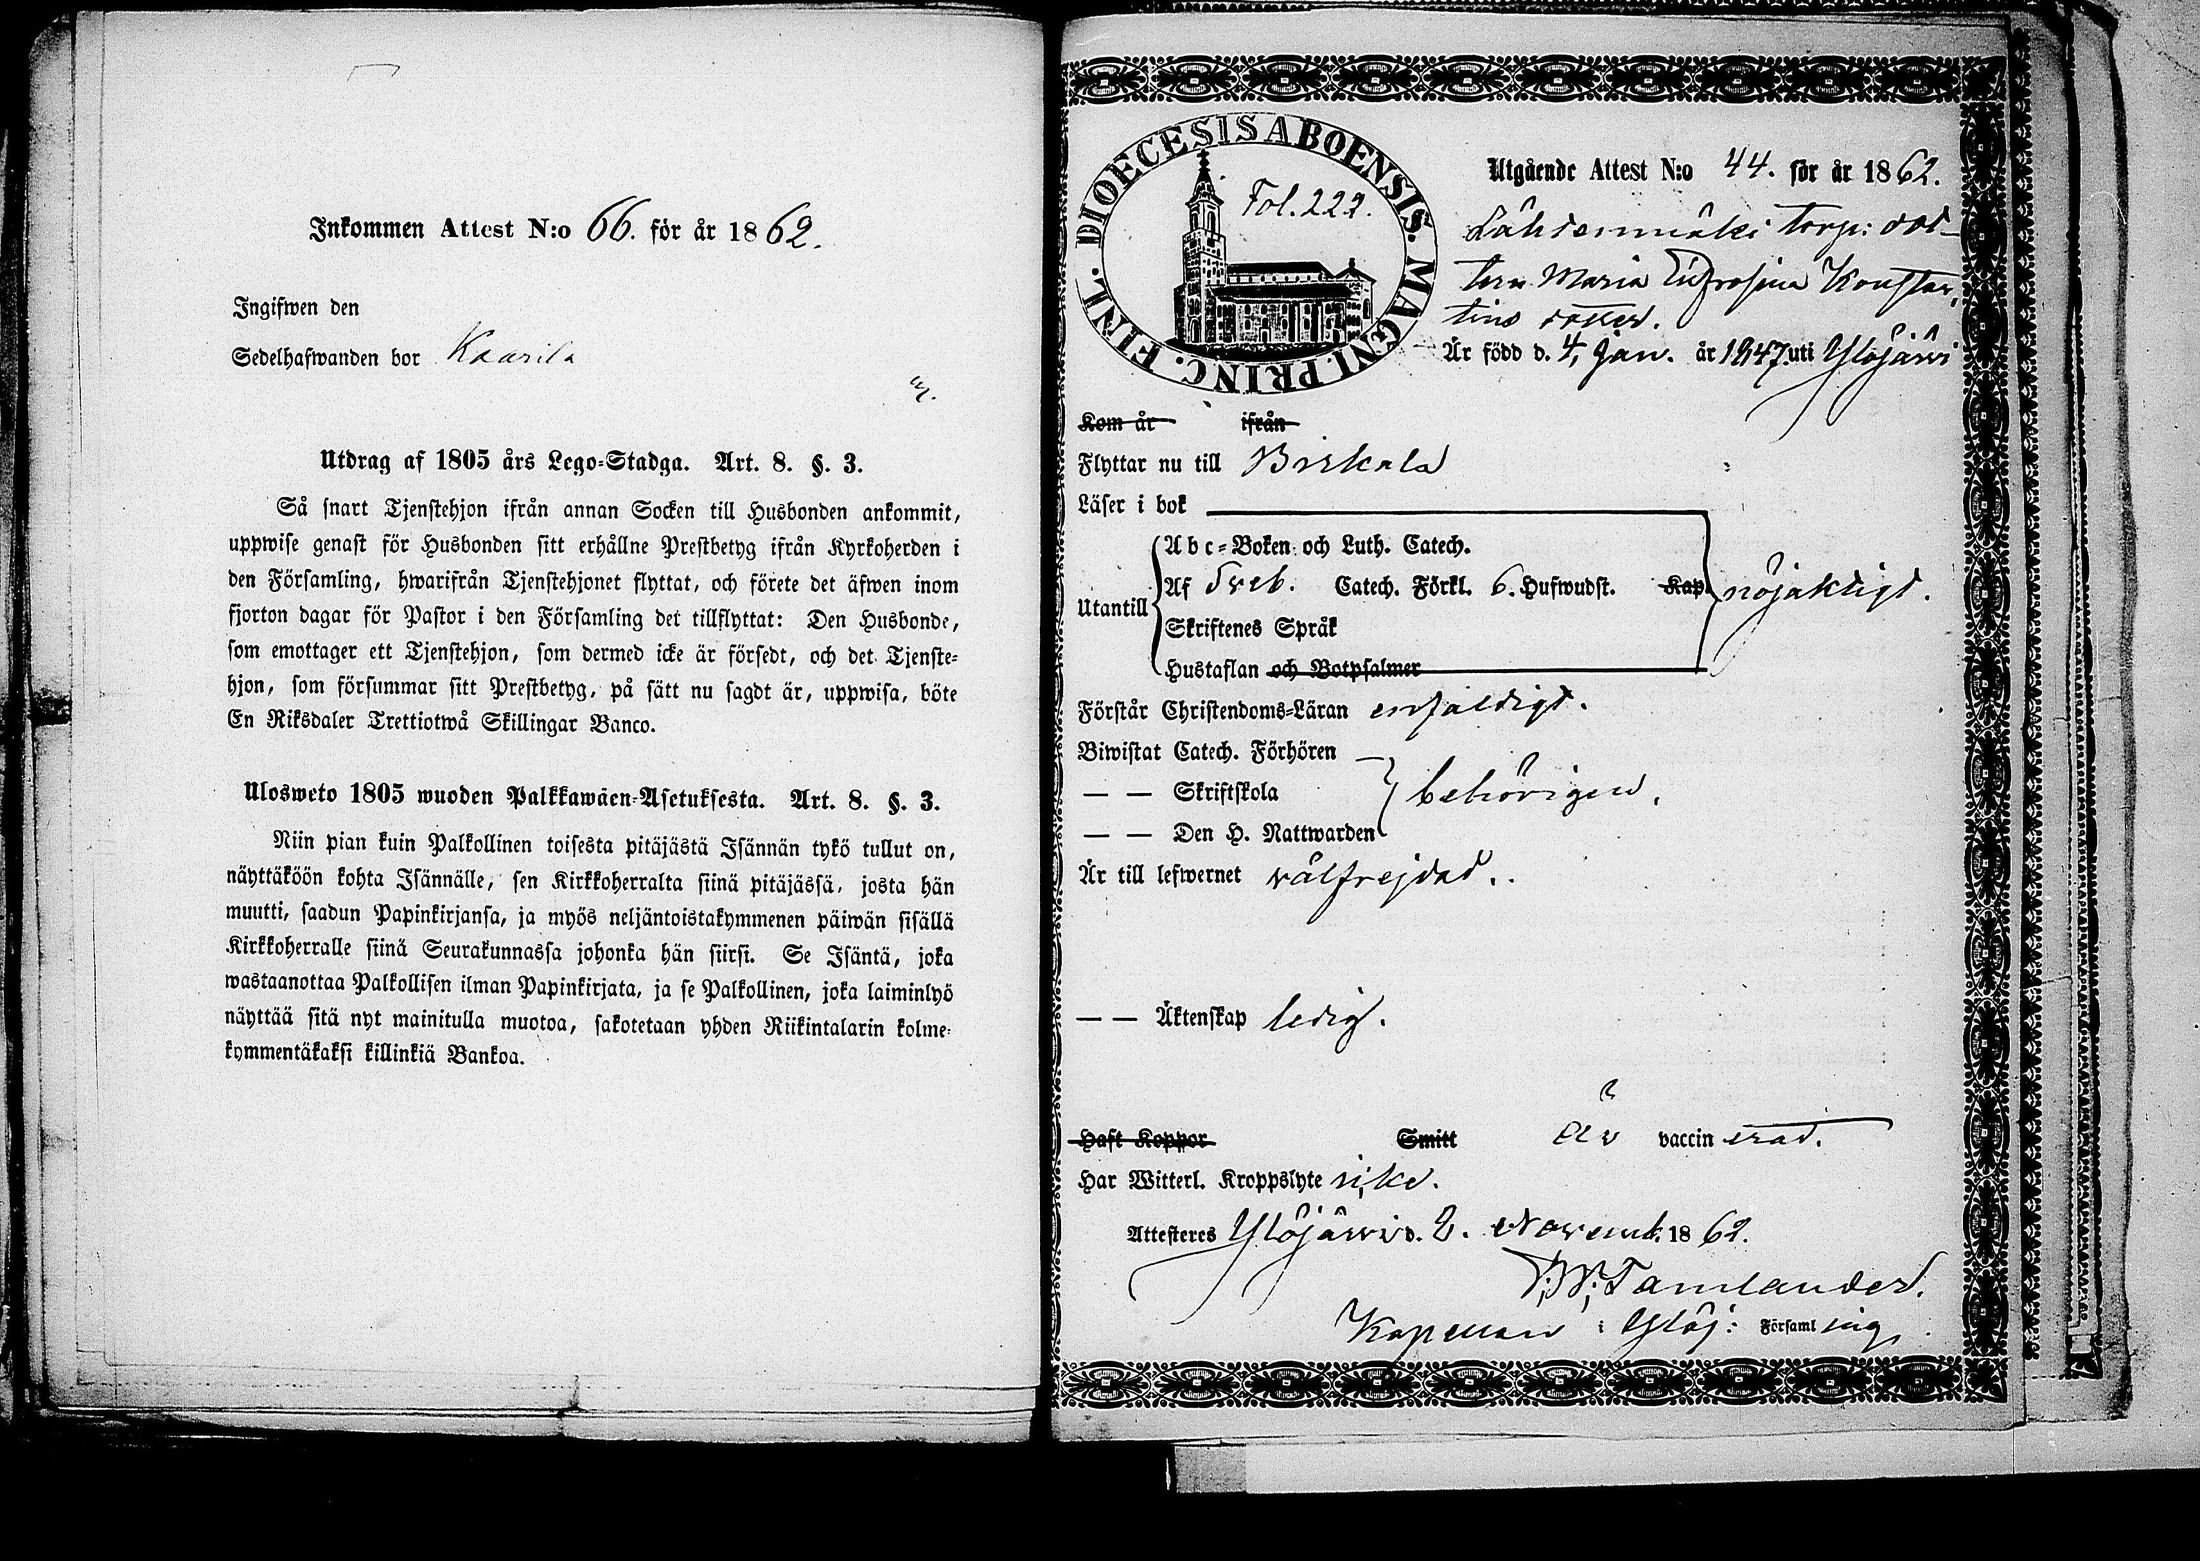 Inkommen Attest N:o 66. för år 1862.
Ingifwen den
Sedelhafwanden bor Kaarila
Utdrag af 1805 års Lego-Stadga. Art. 8. §. 3.
Så snart Tjenstehjon ifrån annan Socken till Husbonden ankommit,
uppwise genast för Husbonden sitt erhållne Prestbetyg ifrån Kyrkoherden i
den Församling, hwarifrån Tjenstehjonet flyttat, och förete det äfwen inom
fjorton dagar för Pastor i den Församling det tillflyttat: Den Husbonde,
som emottager ett Tjenstehjon, som dermed icke är försedt, och det Tjenste-
hjon, som försummar sitt Prestbetyg, på sätt nu sagdt är, uppwisa, böte
En Riksdaler Trettiotwå Skillingar Banco.
Ulosweto 1805 wuoden Palkkawäen-Asetuksesta. Art. 8. §. 3.
Niin pian kuin Palkollinen toisesta pitäjästä Isännän tykö tullut on,
näyttäköön kohta Isännälle, sen Kirkkoherralta siinä pitäjässä, josta hän
muutti, saadun Papinkirjansa, ja myös neljäntoistakymmenen päiwän sisällä
Kirkkoherralle siinä Seurakunnassa johonka hän siirsi. Se Isäntä, joka
wastaanottaa Palkollisen ilman Papinkirjata, ja se Palkollinen, joka laiminlyö
näyttää sitä nyt mainitulla muotoa, sakotetaan yhden Riikintalarin kolme-
kymmentäkaksi killinkiä Bankoa.
DIOECESIS ABOENSIS. MAGNI PRINC. FINL.
Fol. 222.
Utgående Attest N:o 44. för år 1862.
Lähdenmäki torp: dot-
tern Maria Eufrosina Konstan,
tins dotter.
Är född d. 4, Jan. år 1847. uti Ylöjärvi
Kom år ifrån
Flyttar nu till Birkala
Läser i bok
Abc-Boken och Luth. Catech.
Utantill Af Sveb. Catech. Förkl. 6. Hufwudst. Kap. nöjaktigt.
Skriftenes Språk
Hustaflan och Botpsalmer
Förstår Christendoms-Läran enfaldigt.
Biwistat Catech. Förhören
— — Skriftskola behörigen.
— — Den H. Nattwarden
Är till lefwernet välfrejdad.
— — Äktenskap ledig.
Haft Koppor Smitt Är vaccinerad.
Har Witterl. Kroppslyte icke.
Attesteres Ylöjärvi d. 2. Novemb. 1862.
Tamlander.
Kapellan i Ylöj: Församling